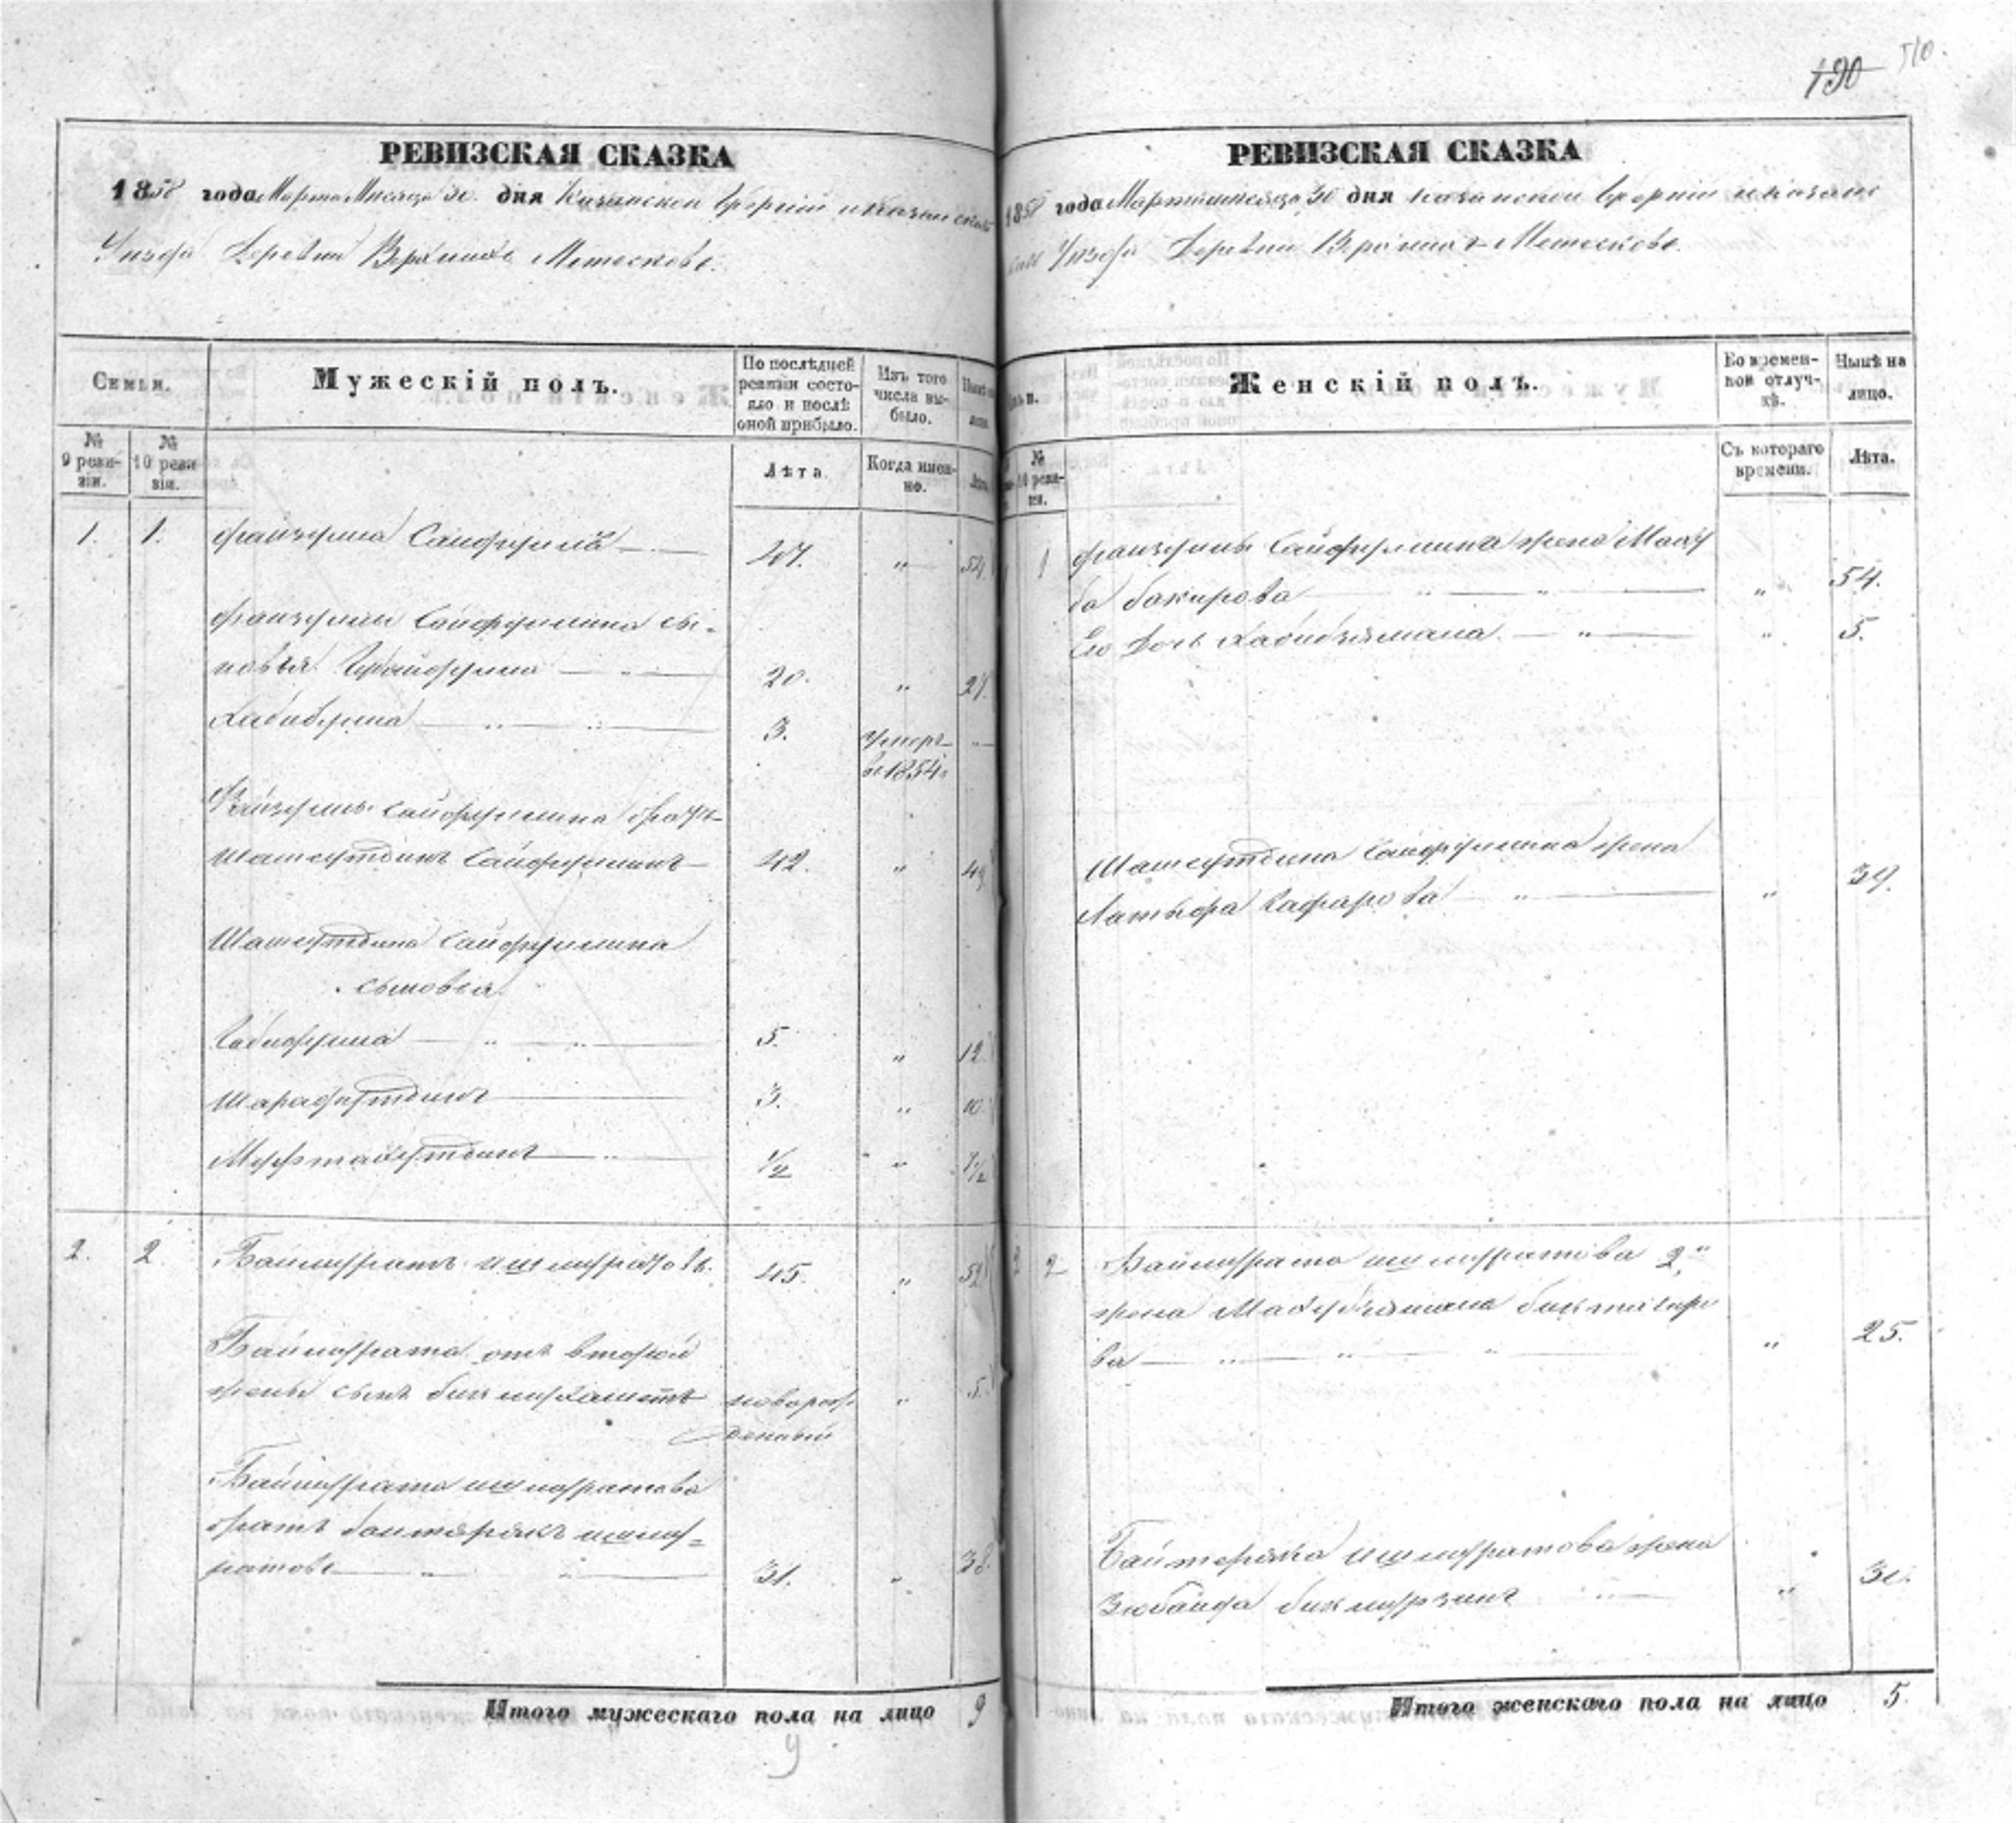 190 510.
РЕВИЗСКАЯ СКАЗКА
1858 года Марта Месяца 30. дня Казанской Губерніи и Казанскаго
Уезда Деревни Верхнихъ Метесковъ.
Семьи.
Мужескій полъ.
По послѣдней ревизіи состояло и послѣ оной прибыло.
Изъ того числа выбыло.
Нынѣ на лицо.
№ 9 ревизіи.
№ 10 ревизіи.
Лѣта.
Когда именно.
Лѣта.
1. 1. Файзулла Сайфуллинъ 47. " 54.
Файзуллы Сайфуллина сы-
новья 20. " 27.
Хабибулла 3. умеръ "
въ 1854г.
Файзуллы Сайфуллина братъ
Шамсутдинъ Сайфуллинъ 42. " 49.
Шамсутдина Сайфуллина
сыновья
5. " 12.
Шарафутдинъ 3. " 10.
1/2 " 7 1/2
2. 2. Баймуратъ Ишмуратовъ. 45. " 52
Баймурата отъ второй
жены сынъ Бикмухаметъ новорож- " 5.
денный
Баймурата Ишмуратова
братъ Байтерякъ Ишму-
ратовъ 31. " 38.
Итого мужескаго пола на лицо 9
9
РЕВИЗСКАЯ СКАЗКА
1858 года Марта месяца 30 дня Казанской Губерніи и Казанс
каго Уезда Деревни Верхнихъ Метесковъ.
Женскій полъ.
Во временной отлучкѣ.
Нынѣ на лицо.
№ 10 ревизіи.
Съ котораго времени.
Лѣта.
1 Файзуллы Сайфуллина жена
ба Бакирова " 54.
Его дочь Хабибзямала " 5.
Шамсутдина Сайфуллина жена
Гафарова " 39.
2 2 Баймурата Ишмуратова 2я
жена
ва " 25.
Байтеряка Ишмуратова жена
Зюбайда " 30.
Итого женскаго пола на лицо 5.